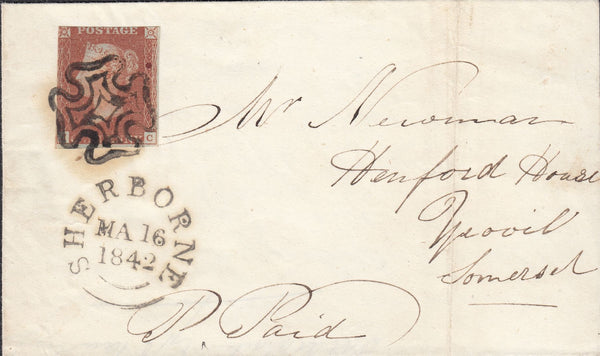 POSTAGE
C
Mr Newman
Henford House
Yeovil
Somerset
SHERBORNE
MA 16
1842
P. Paid